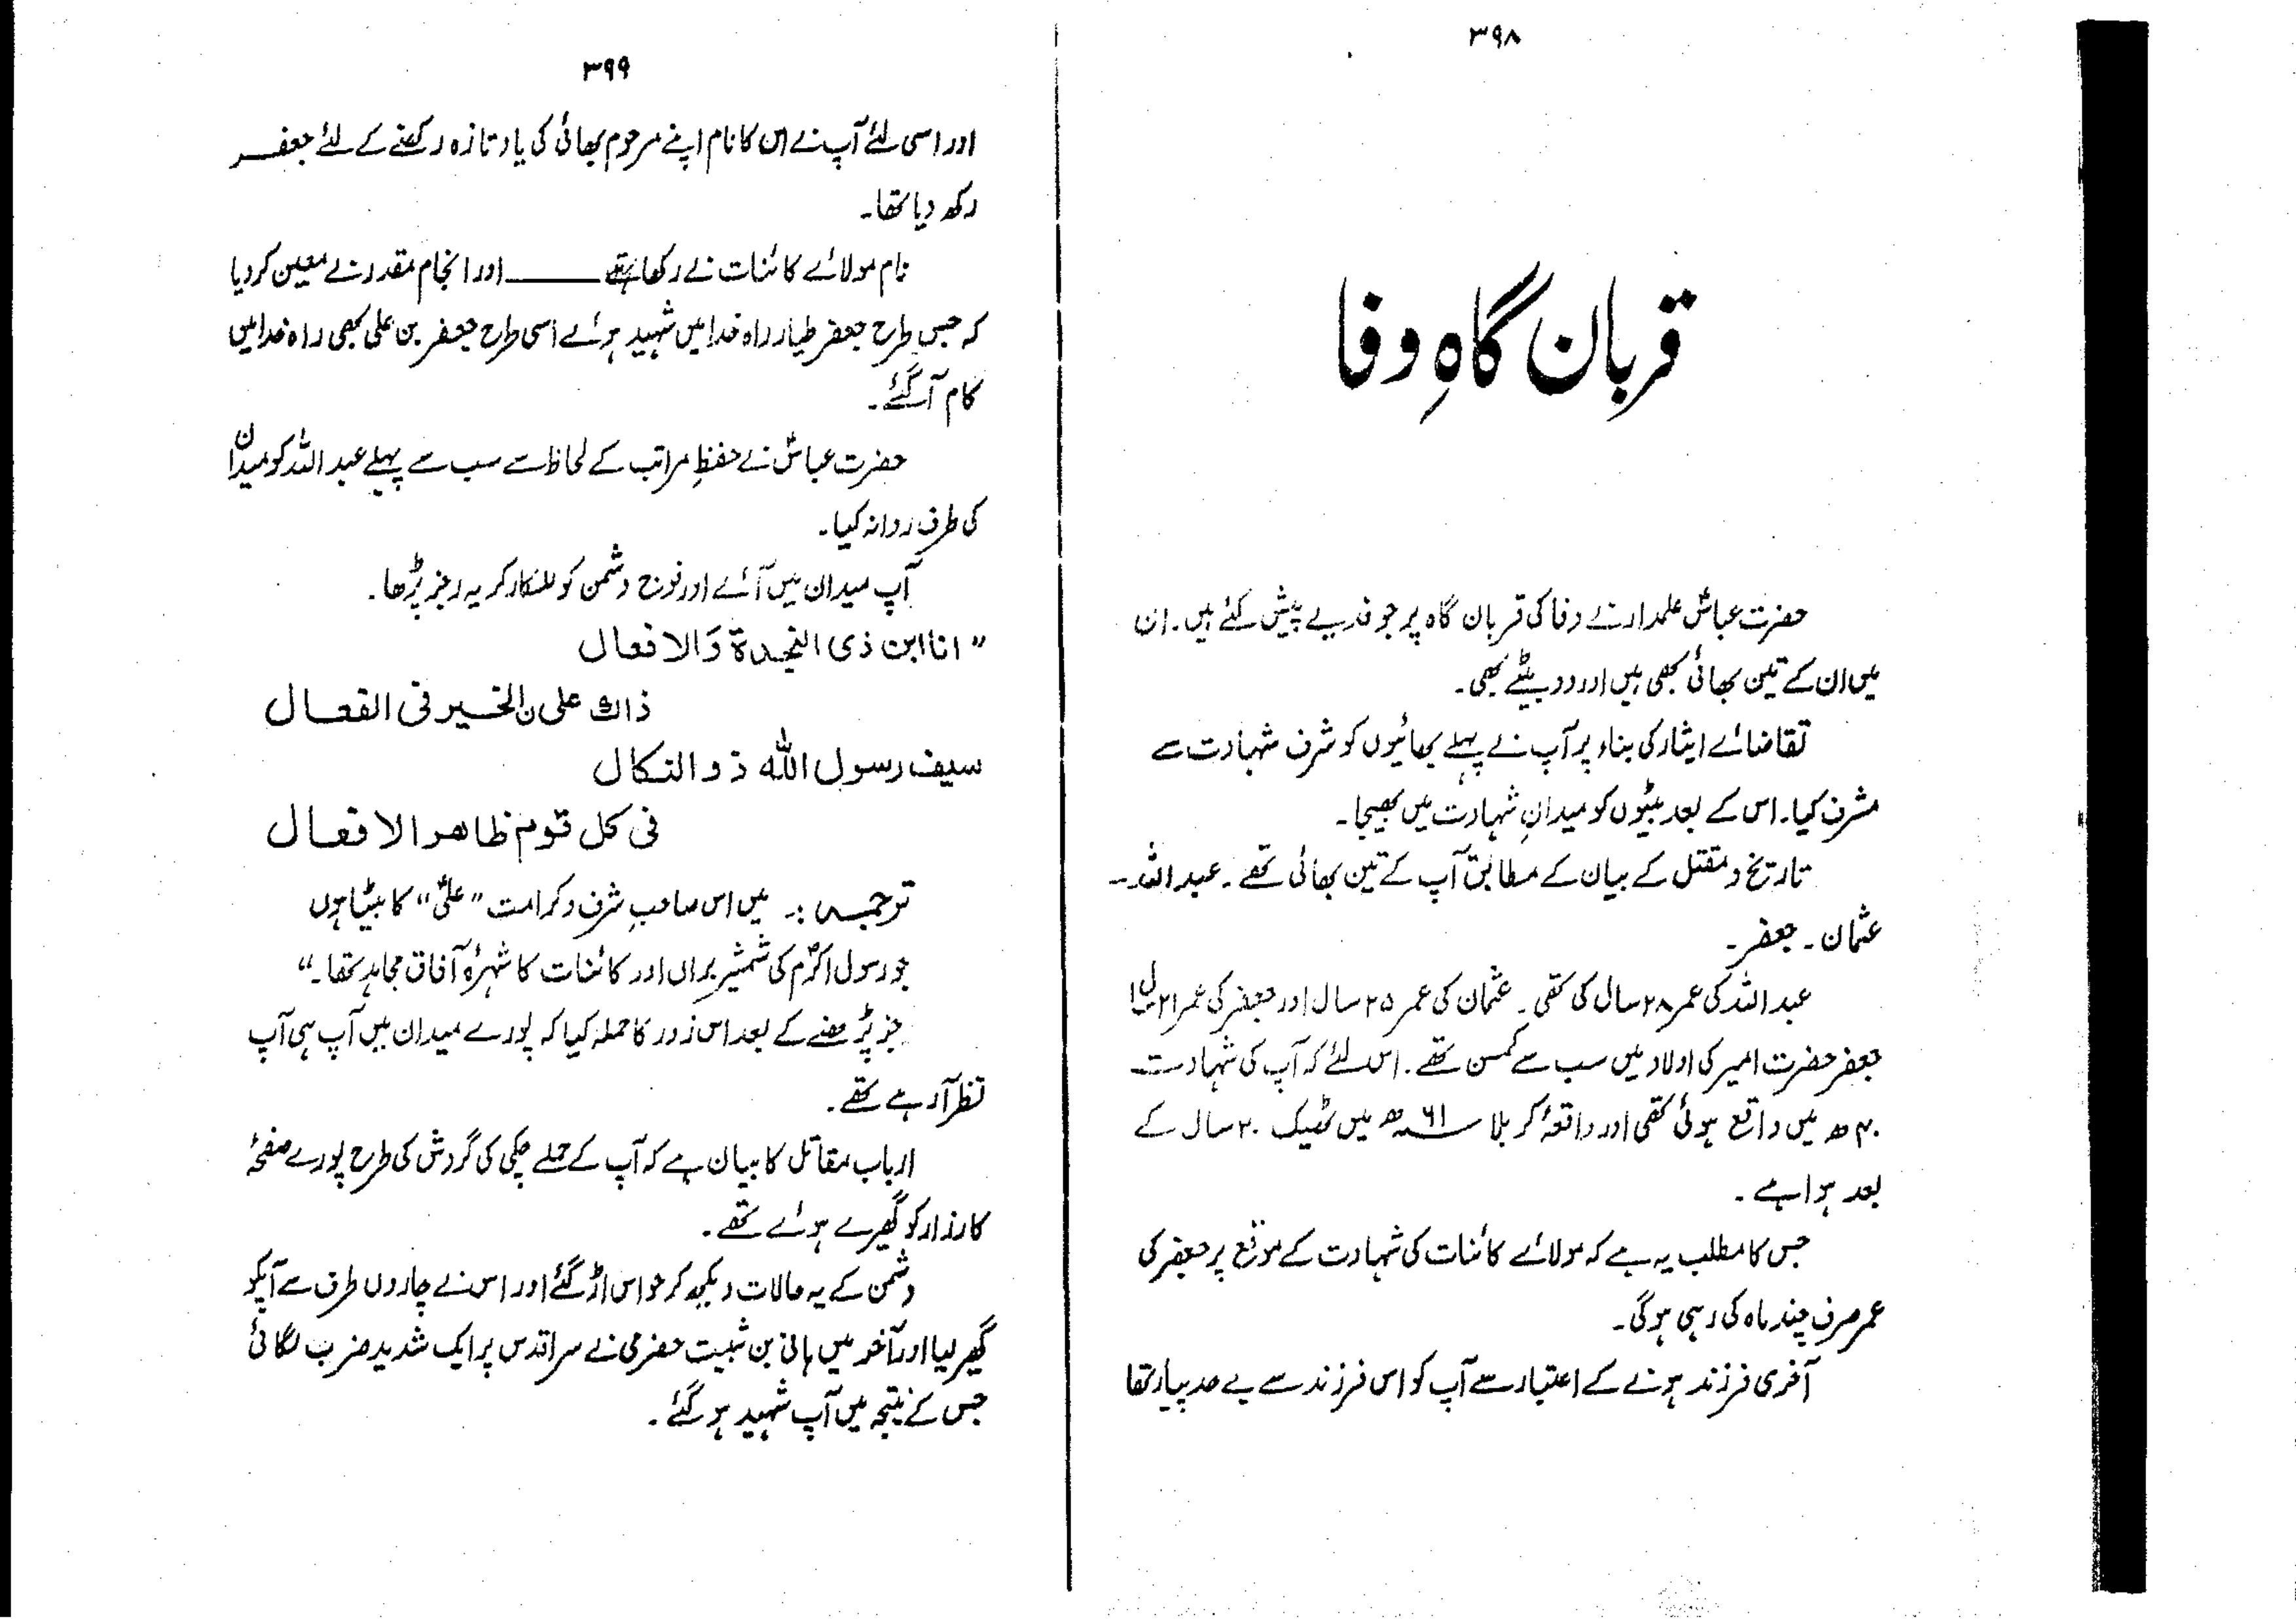 ۳۹۸
قربان گاہِ وفا
حضرت عباسؑ علمدار نے وفا کی قربان گاہ پر جو فدیے پیش کئے ہیں۔ ان
میں ان کے تین بھائی بھی ہیں اور دو بیٹے بھی۔
تقاضائے ایثار کی بناء پر آپ نے پہلے بھائیوں کو شرف شہادت سے
مشرف کیا۔ اس کے بعد بیٹوں کو میدانِ شہادت میں بھیجا۔
تاریخ و مقتل کے بیان کے مطابق آپ کے تین بھائی تھے۔ عبداللہ۔
عثمان۔ جعفر۔
عبداللہ کی عمر ۲۸ سال کی تھی۔ عثمان کی عمر ۲۵ سال اور جعفر کی عمر ۲۱ سال
جعفر حضرت امیر کی اولاد میں سب سے کمسن تھے۔ اس لئے کہ آپ کی شہادت
۴۰ھ میں واقع ہوئی تھی اور واقعۂ کربلا ۶۱ھ میں ٹھیک ۲۰ سال کے
بعد ہوا ہے۔
جس کا مطلب یہ ہے کہ مولائے کائنات کی شہادت کے موقع پر جعفر کی
عمر صرف چند ماہ کی رہی ہوگی۔
آخری فرزند ہونے کے اعتبار سے آپ کو اس فرزند سے بے حد پیار تھا
۳۹۹
اور اسی لئے آپ نے اس کا نام اپنے مرحوم بھائی کی یاد تازہ رکھنے کے لئے جعفر
رکھ دیا تھا۔
نام مولائے کائنات نے رکھا ——— اور انجام مقدر نے معین کر دیا
کہ جس طرح جعفر طیار راہ خدا میں شہید ہوئے اسی طرح جعفر بن علی بھی راہ خدا میں
کام آگئے۔
حضرت عباسؑ نے حفظِ مراتب کے لحاظ سے سب سے پہلے عبداللہ کو میدان
کی طرف روانہ کیا۔
آپ میدان میں آئے اور فوج دشمن کو للکار کر یہ رجز پڑھا۔
"انا ابن ذی النجدۃ وَالافعال
ذاک علی ن الخیر فی الفعال
سیف رسول اللہ ذو النکال
فی کل قوم ظاھر الافعال
ترجمہ:۔ میں اس صاحبِ شرف و کرامت "علیؑ" کا بیٹا ہوں
جو رسول اکرمؐ کی شمشیر براں اور کائنات کا شہرۂ آفاق مجاہد تھا۔"
جز پڑھنے کے بعد اس زور کا حملہ کیا کہ پورے میدان میں آپ ہی آپ
نظر آرہے تھے۔
ارباب مقاتل کا بیان ہے کہ آپ کے حملے چکی کی گردش کی طرح پورے صفحۂ
کارزار کو گھیرے ہوئے تھے۔
دشمن کے یہ حالات دیکھ کر حواس اڑ گئے اور اس نے چاروں طرف سے آپکو
گھیر لیا اور آخر میں ہانی بن ثبیت حضرمی نے سر اقدس پر ایک شدید ضرب لگائی
جس کے نتیجہ میں آپ شہید ہو گئے۔